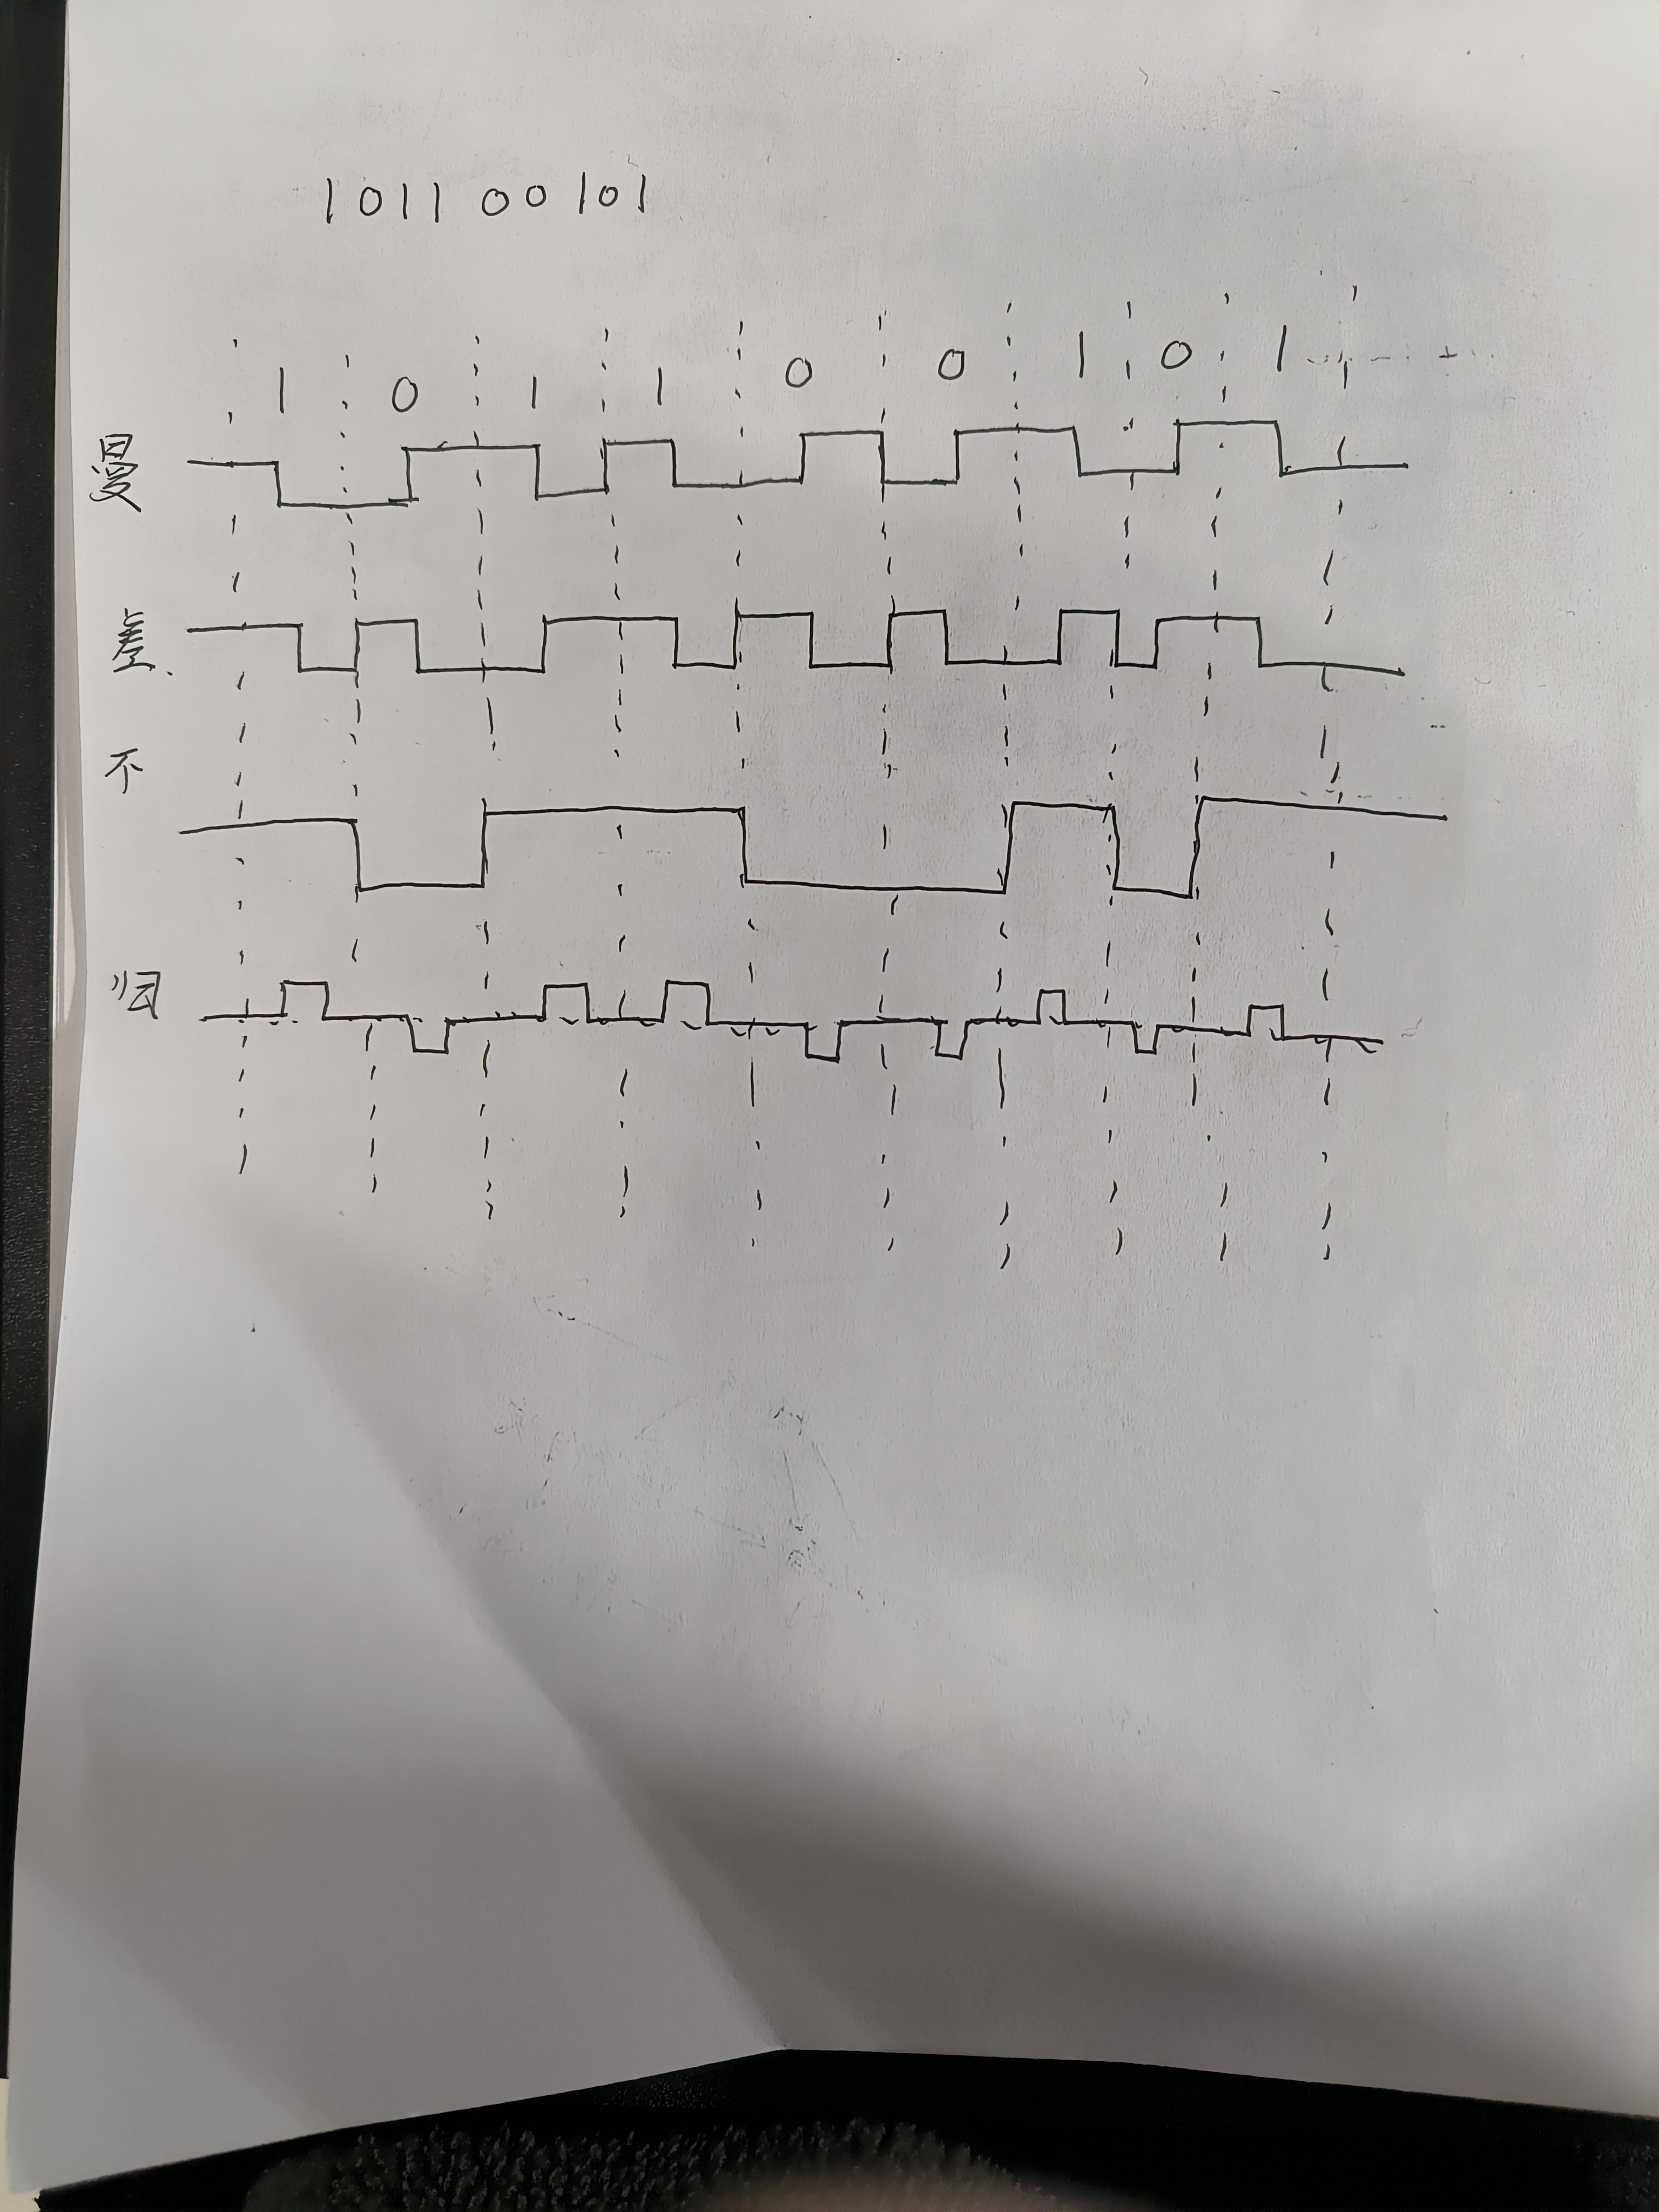 101100101
1 0 1 1 0 0 1 0 1
曼
差
不
归